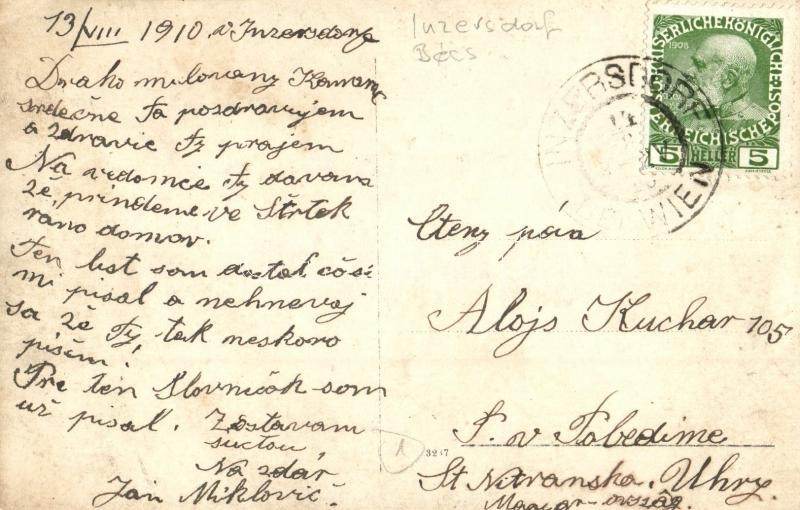 13/VIII 1910 v Inzersdorf
Draho milovany Kamarad
srdečne Ta pozdravujem
a zdravie Ty prajem
Na vedomie Ty davam
že prindeme ve Štrtek
ráno domov.
Ten list som dostal čosi
mi pisal a nehnevaj
sa že Ty, tak neskoro
pišem.
Pre ten Slovničák som
už pisal. Zostavam
suctou
Na zdár
Jan Miklovič.
Inzersdorf
Bécs
KAISERLICHE KÖNIGLICHE ÖSTERREICHISCHE POST
1908
5 HELLER 5
INZERSDORF
WIEN
Cteny pán
Alojs Kuchar 105
P. v Pobedime
St Nitranska, Uhry
Magyar-ország
1
3247